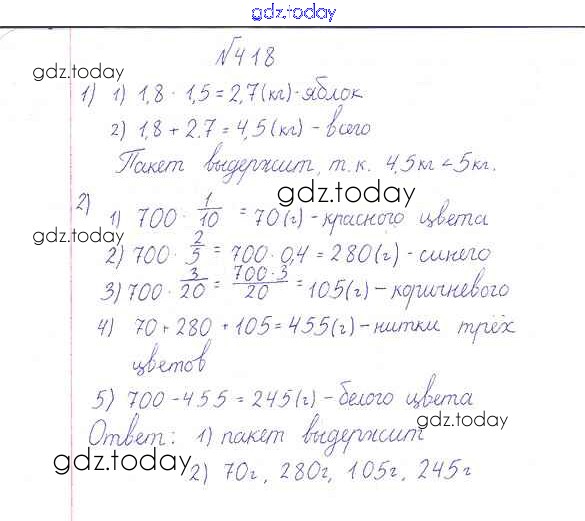 gdz.today
№418
gdz.today
1) 1) 1,8 · 1,5 = 2,7 (кг) - яблок
2) 1,8 + 2.7 = 4,5 (кг) - всего
Пакет выдержит, т.к. 4,5 кг < 5 кг.
gdz.today
2) 1) 700 · 1/10 = 70 (г) - красного цвета
gdz.today
2) 700 · 2/5 = 700 · 0,4 = 280 (г) - синего
3) 700 · 3/20 = 700·3/20 = 105 (г) - коричневого
4) 70 + 280 + 105 = 455 (г) - нитки трёх
цветов
5) 700 - 455 = 245 (г) - белого цвета
Ответ: 1) пакет выдержит
gdz.today
2) 70г, 280г, 105г, 245г
gdz.today